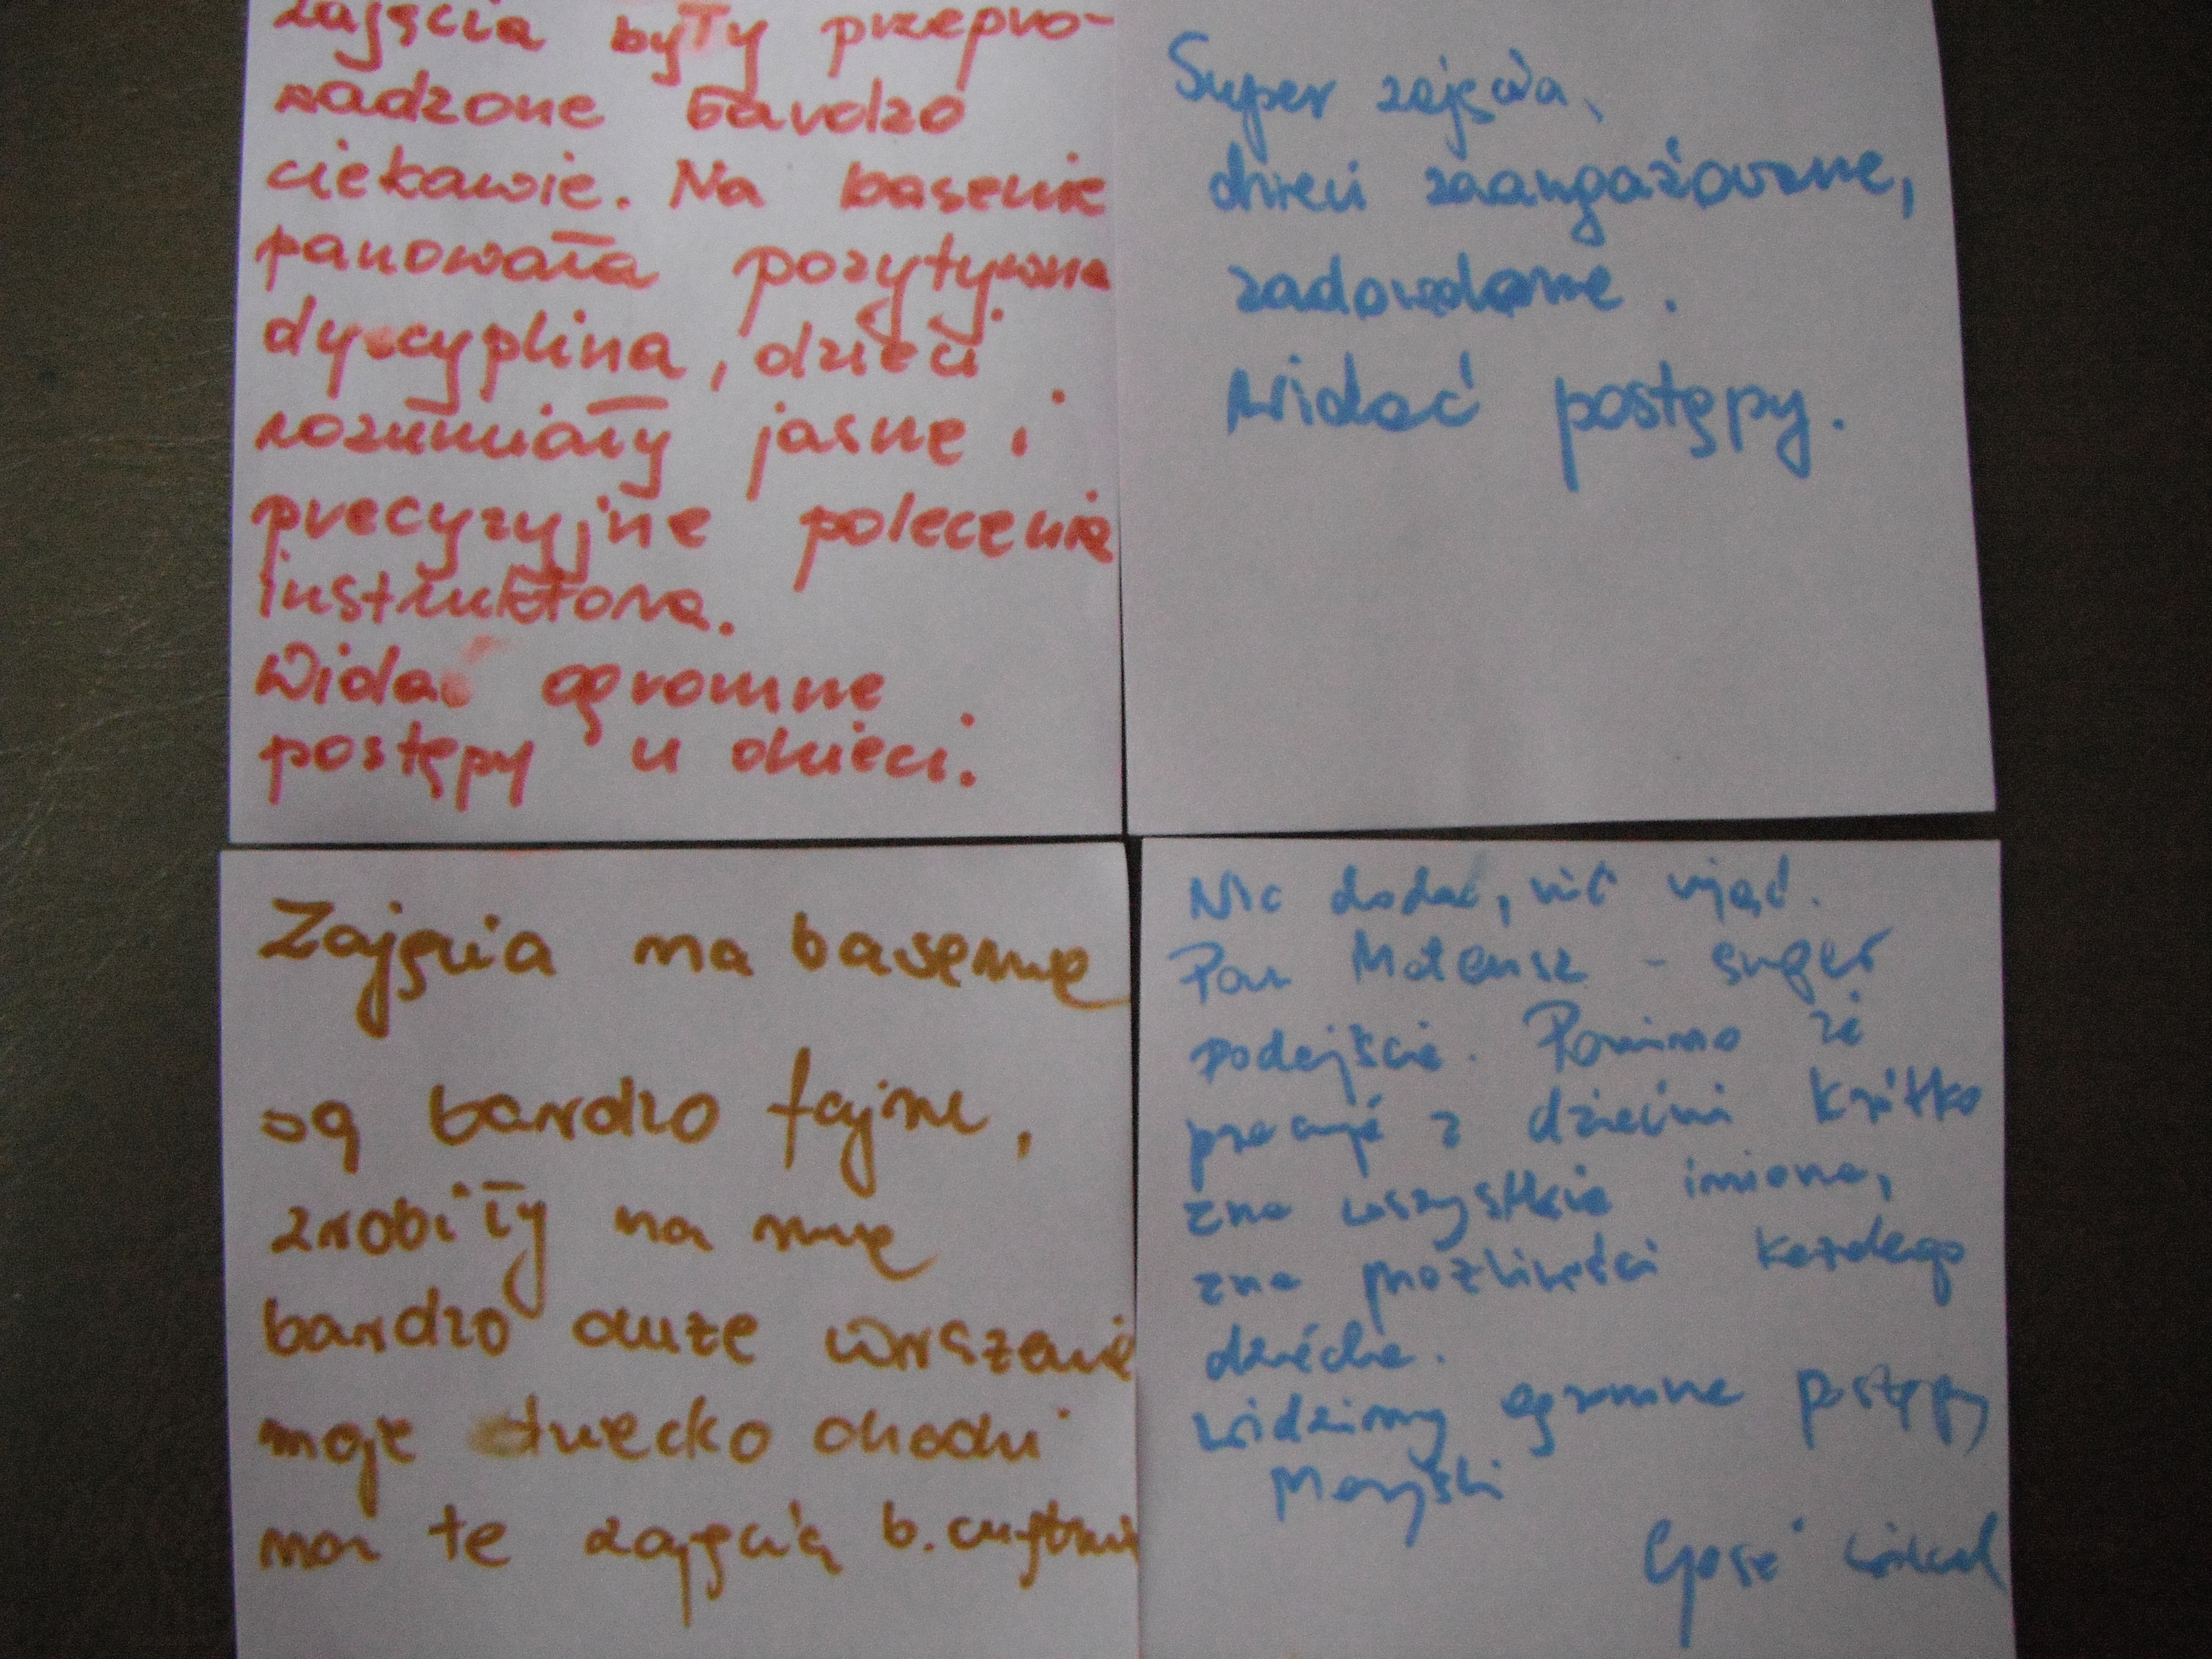 zajęcia były przepro-
wadzone bardzo
ciekawie. Na basenie
panowała pozytywna
dyscyplina, dzieci
rozumiały jasne i
precyzyjne polecenia
instruktora.
Widać ogromne
postępy u dzieci.
Super zajęcia,
dzieci zaangażowane,
zadowolone.
Widać postępy.
Zajęcia na basenie
są bardzo fajne,
zrobiły na mnie
bardzo duże wrażenie
moje dziecko chodzi
na te zajęcia b. chętnie
Nic dodać, nic ująć.
Pan Mateusz - super
podejście. Pomimo że
pracuje z dziećmi krótko
zna wszystkie imiona,
zna możliwości każdego
dziecka.
Widzimy ogromne postępy
Maryski